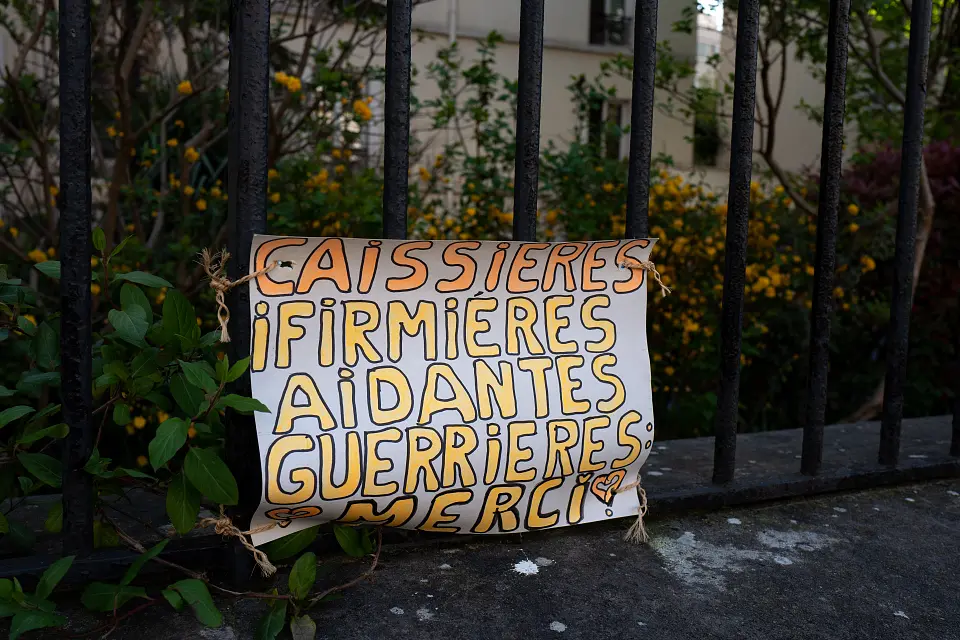 CAiSSiERES
iFiRMiÉRES
AiDANTES
GUERRiERES:
MERCi